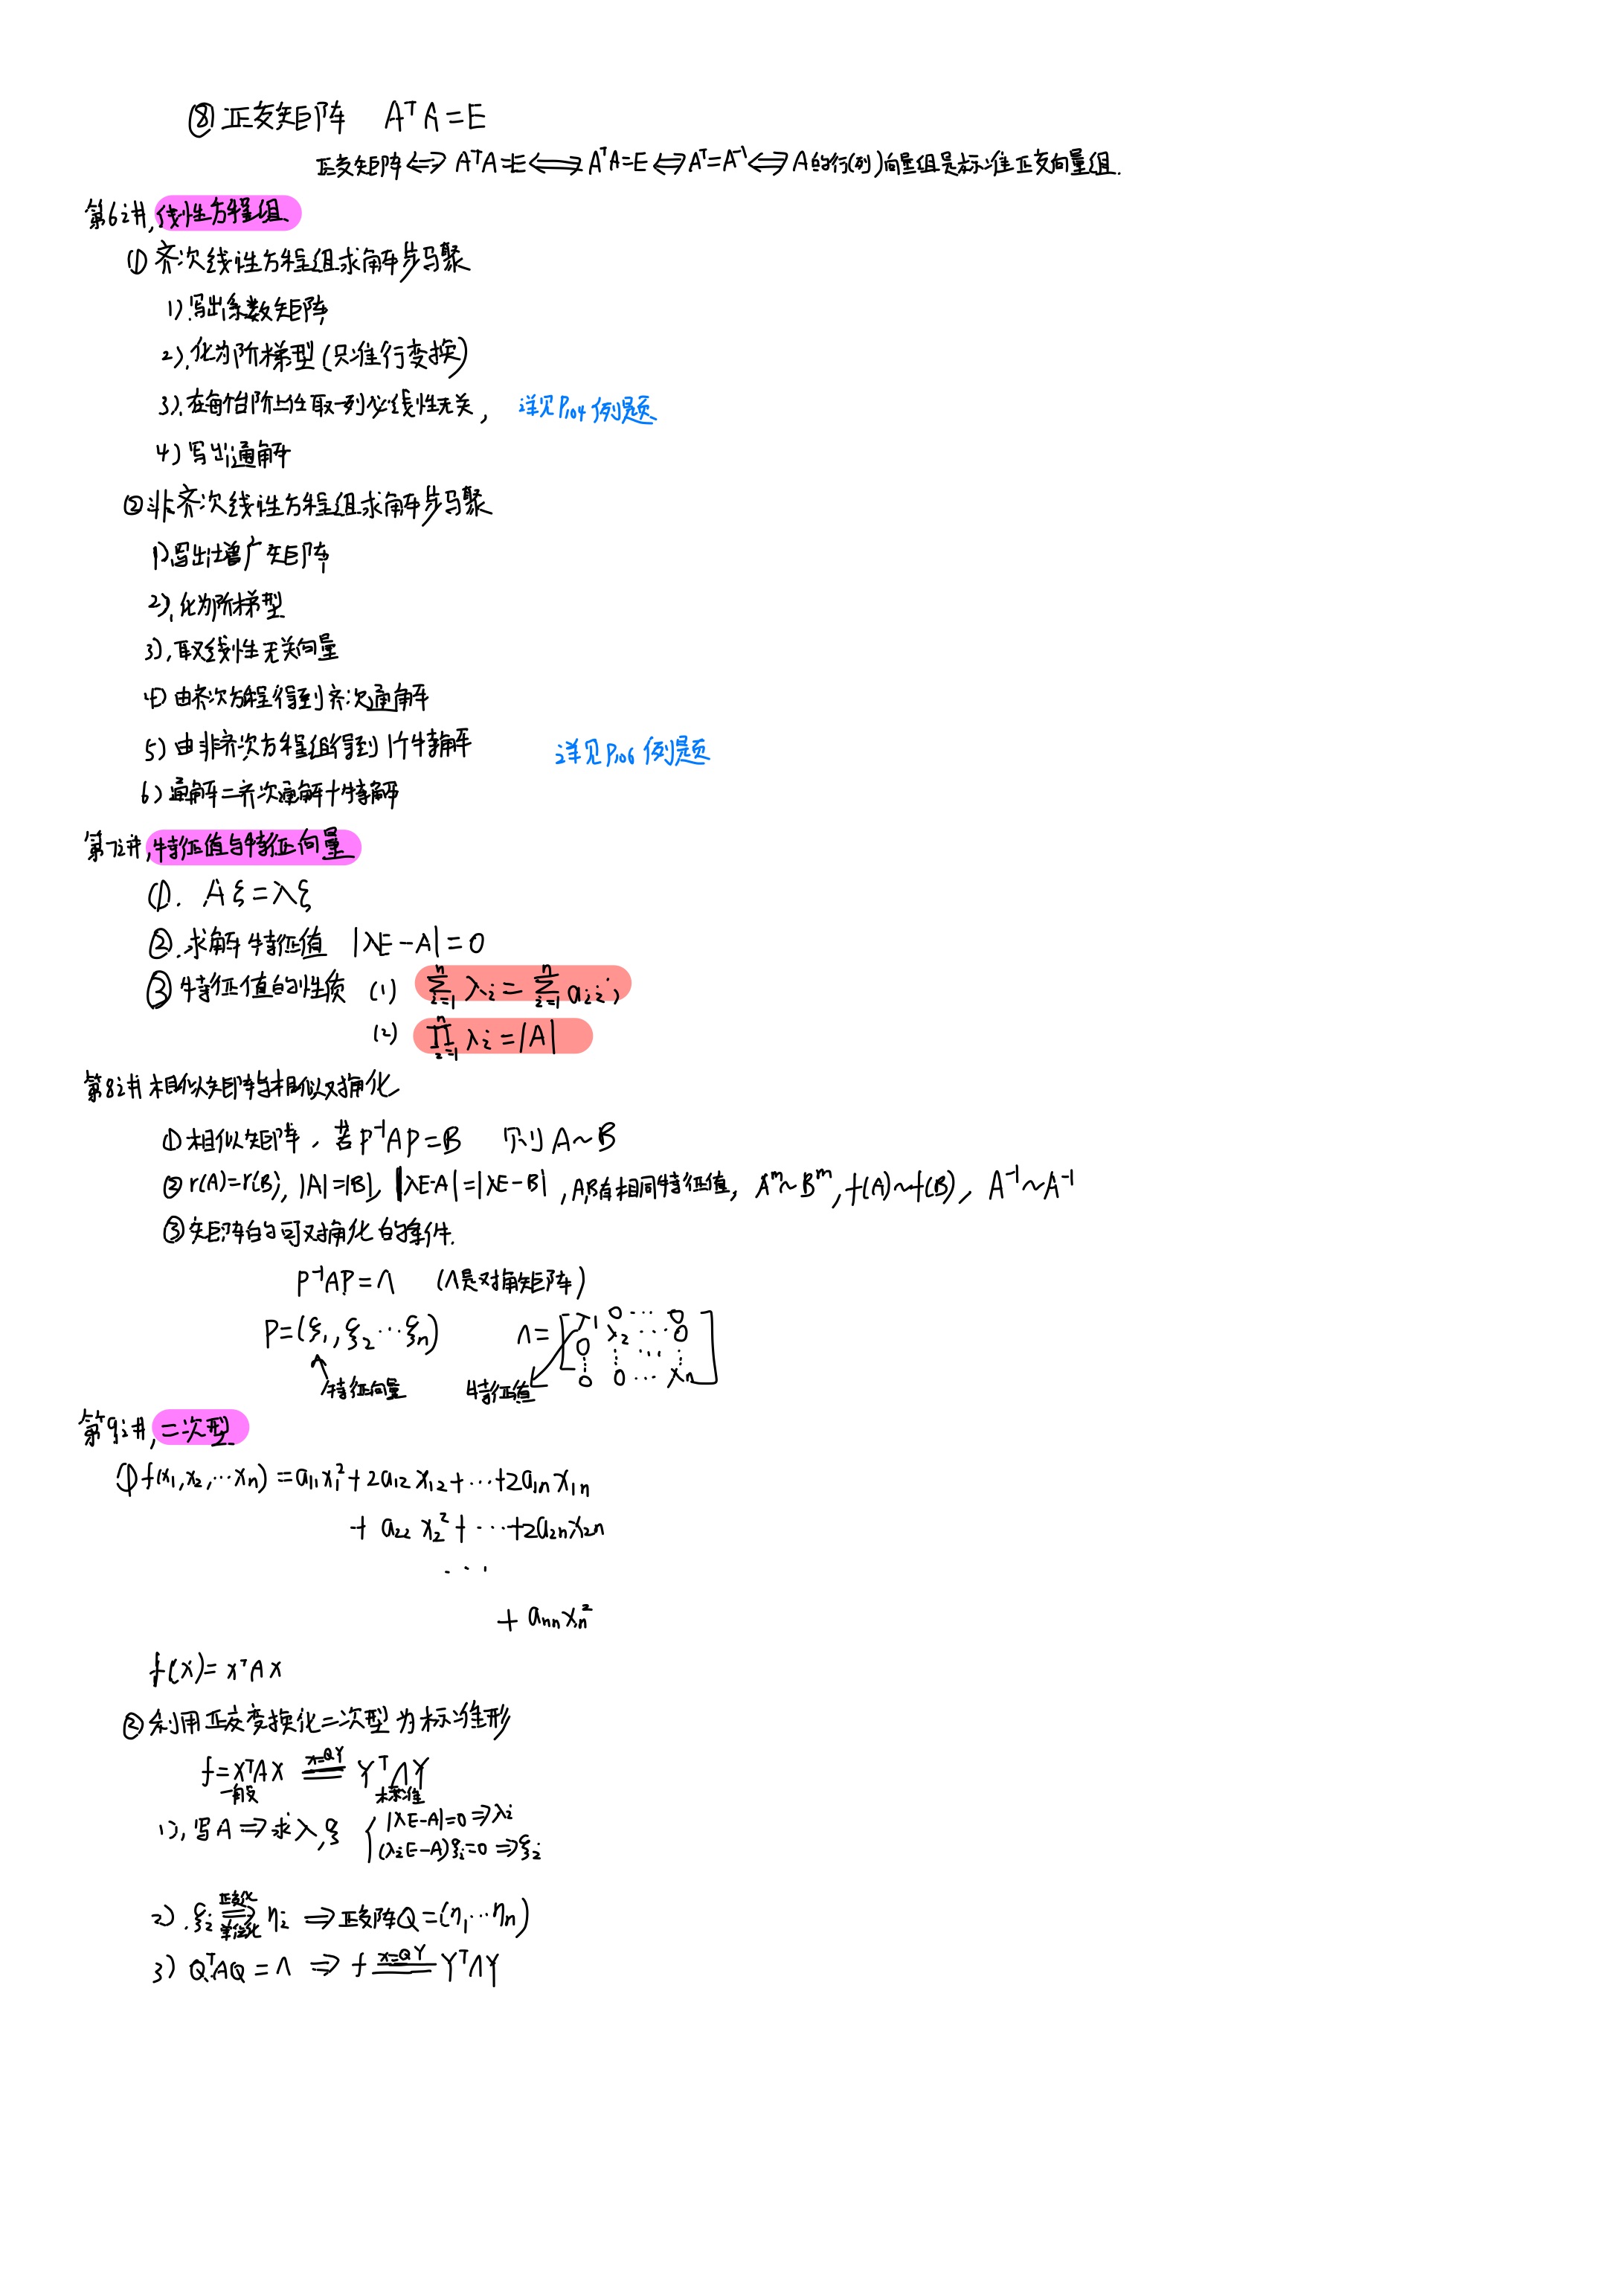 ⑧正交矩阵 AᵀA=E
正交矩阵⟺AᵀA=E⟺AᵀA=E⟺Aᵀ=A⁻¹⟺A的行(列)向量组是标准正交向量组.
第6讲,线性方程组
① 齐次线性方程组求解步骤
1).写出系数矩阵
2).化为阶梯型(只准行变换)
3).在每台阶上任取一列必线性无关, 详见P₁₀₄例题
4)写出通解
②非齐次线性方程组求解步骤
1)写出增广矩阵
2).化为阶梯型
3).取线性无关向量
4)由齐次方程得到齐次通解
5)由非齐次方程组得到1个特解 详见P₁₀₆例题
6)通解=齐次通解+特解
第7讲,特征值与特征向量
①. Aξ=λξ
②.求解特征值 |λE-A|=0
③特征值的性质 (1) ∑ⁿᵢ₌₁ λᵢ=∑ⁿᵢ₌₁ aᵢᵢ;
(2) ∏ⁿᵢ₌₁ λᵢ=|A|
第8讲 相似矩阵与相似对角化
①相似矩阵. 若P⁻¹AP=B 则A~B
②r(A)=r(B), |A|=|B|, |λE-A|=|λE-B|, A,B有相同特征值, Aᵐ~Bᵐ, f(A)~f(B), A⁻¹~A⁻¹
③矩阵的可对角化的条件.
P⁻¹AP=Λ (Λ是对角矩阵)
P=(ξ₁,ξ₂…ξn) Λ=[λ₁ 0 … 0
0 λ₂ … 0
⋮ ⋮ … ⋮
0 0 … λn]
特征向量 特征值
第9讲,二次型
①f(x₁,x₂,…xn)=a₁₁x₁²+2a₁₂x₁₂+…+2a₁nx₁n
+a₂₂x₂²+…+2a₂nx₂n
…
+annxn²
f(x)=xᵀAx
②利用正交变换化二次型为标准形
f=XᵀAX x=QY YᵀΛY
一般 标准
1).写A⇒求λ,ξ {|λE-A|=0⇒λᵢ
(λᵢE-A)ξᵢ=0⇒ξᵢ
2).ξᵢ 正交化 单位化 ⇒ηᵢ⇒正交阵Q=(η₁…ηn)
3)QᵀAQ=Λ⇒f x=QY YᵀΛY